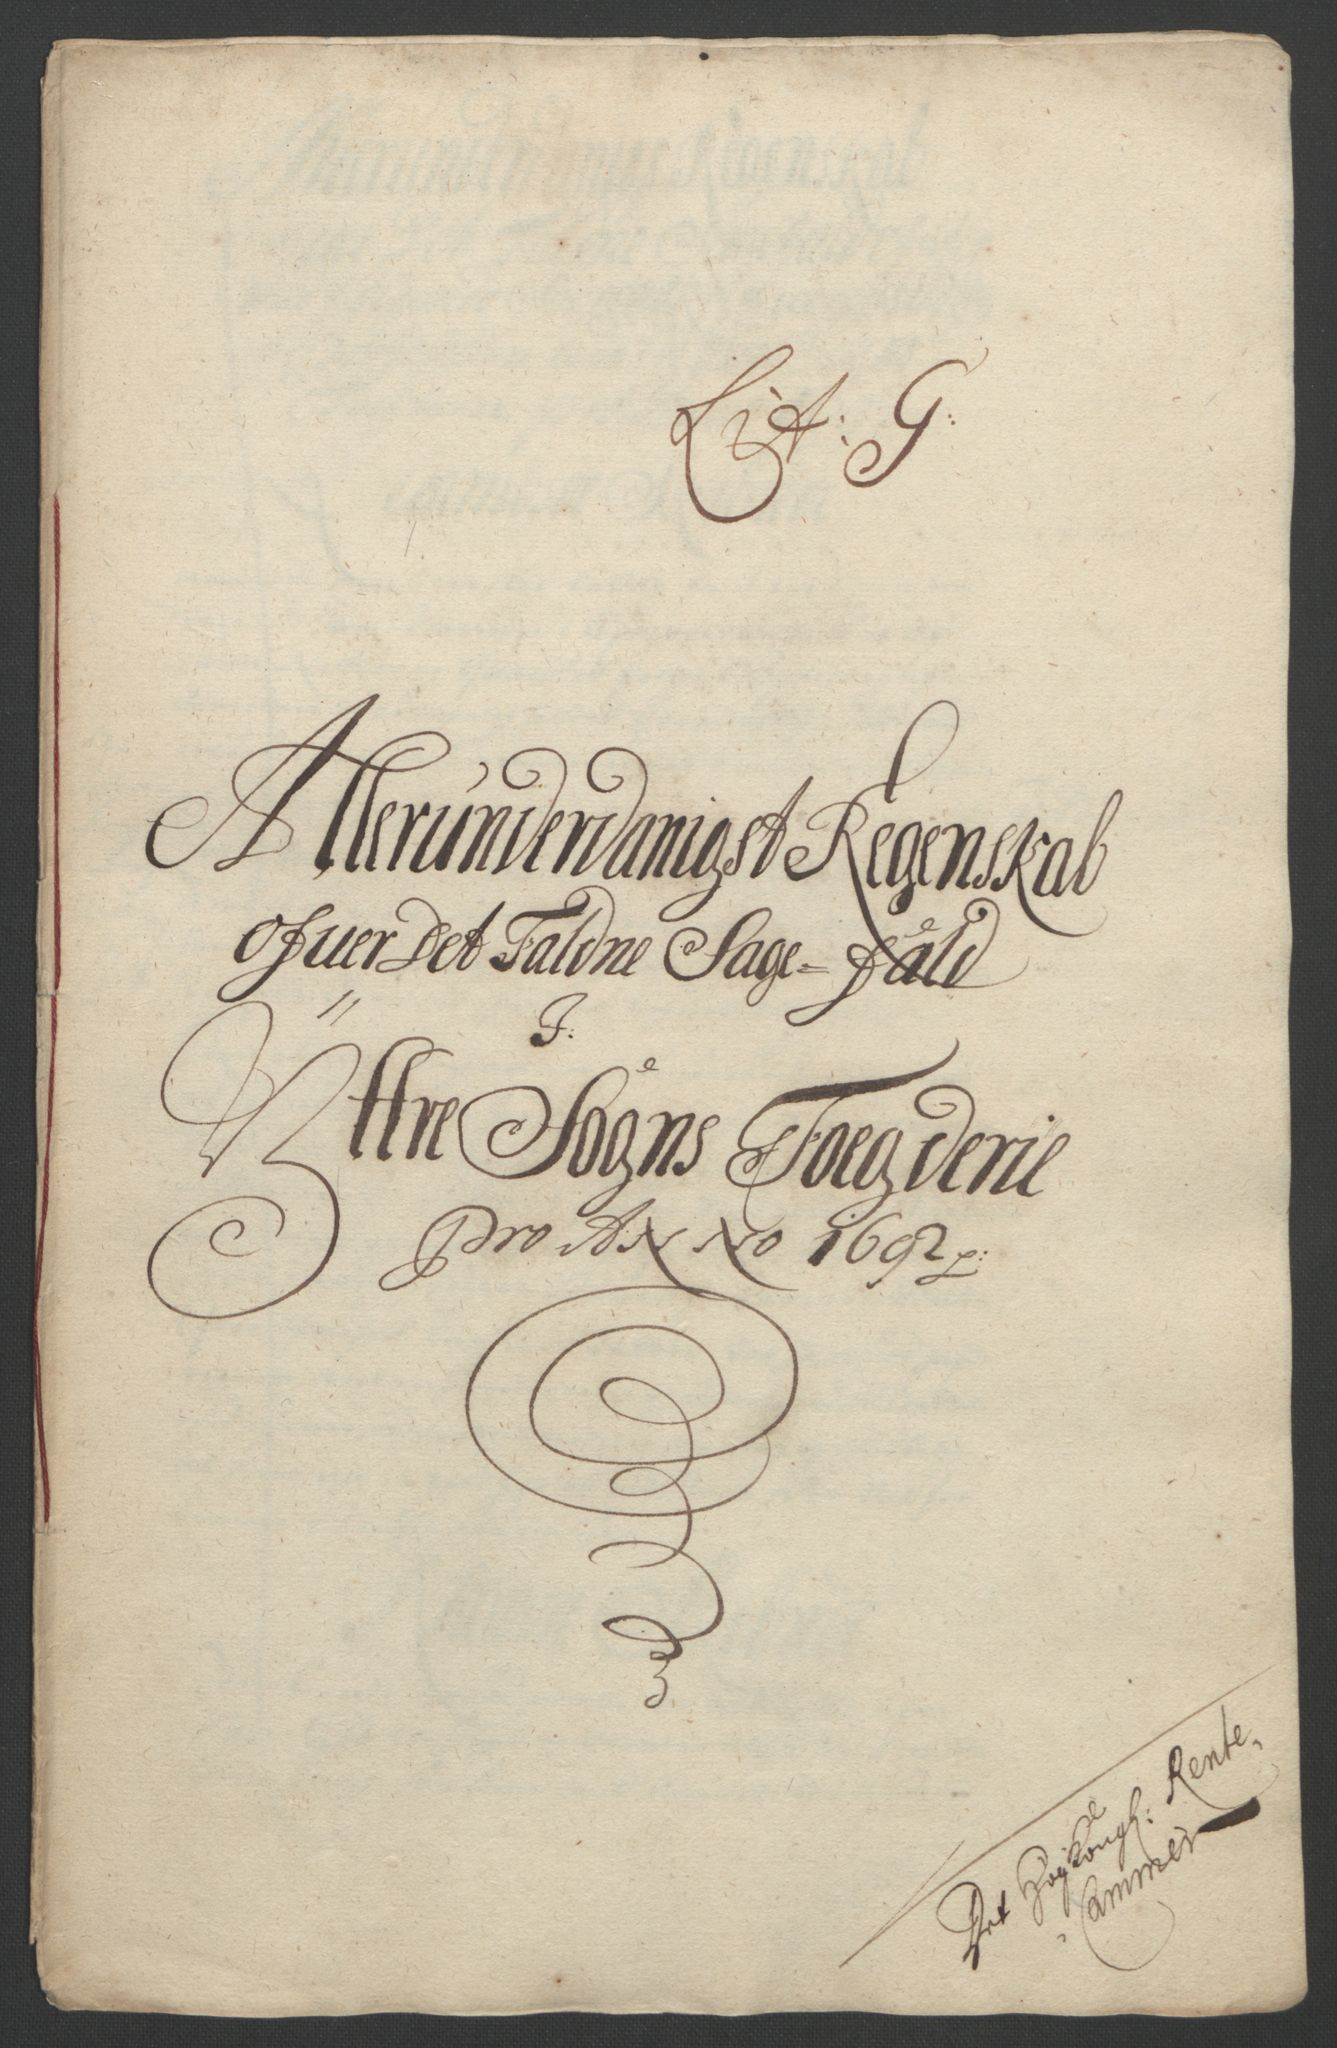 Lit: G:
Allerunderdanigst Regenskab
ofuer det Faldne Sage-fald
I:
Yttre Sogns Foegderie
Pro ANNO 1692
Det Kongl: Rente-
Cammer